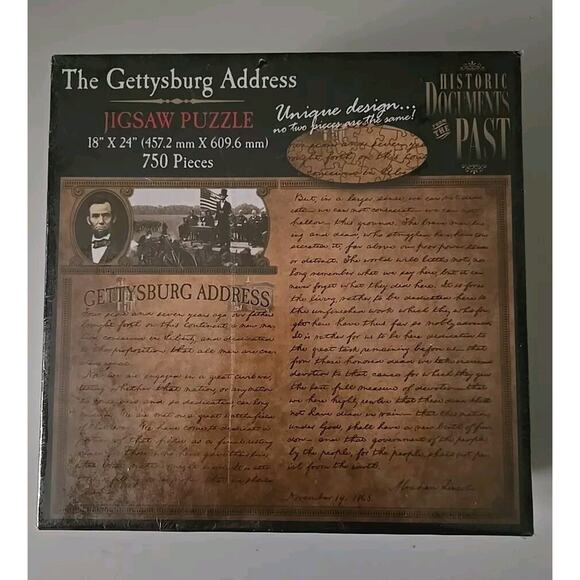 The Gettysburg Address
JIGSAW PUZZLE
18" X 24" (457.2 mm X 609.6 mm)
750 Pieces
Unique design...
no two pieces are the same!
HISTORIC
DOCUMENTS
FROM THE
PAST
GETTYSBURG ADDRESS
Four score and seven years ago our fathers
brought forth on this continent, a new
conceived in Liberty, and dedicated
proposition that all men are
Now we are engaged in a great civil war,
testing whether that nation, or any nation
so conceived and so dedicated, can long
We are met on a great battle-field
We have come to dedicate a
of that field, as a final resting
those who here gave their lives
But, in a larger sense, we can not dedi-
cate we can not consecrate we can not
hallow this ground. The brave men, liv-
ing and dead, who struggled here have con-
secrated it, far above our poor power to add
or detract. The world will little note, nor
long remember what we say here, but it can
never forget what they did here. It is for us
the living, rather, to be dedicated here to
the unfinished work which they who fou-
ght here have thus far so nobly advanced.
It is rather for us to be here dedicated to
the great task remaining before us that
from these honored dead we take increased
devotion to that cause for which they gave
the last full measure of devotion that
we here highly resolve that these dead shall
not have died in vain that this nation,
under God, shall have a new birth of free-
dom and that government of the people,
by the people, for the people, shall not per-
ish from the earth.
Abraham Lincoln
November 19, 1863.